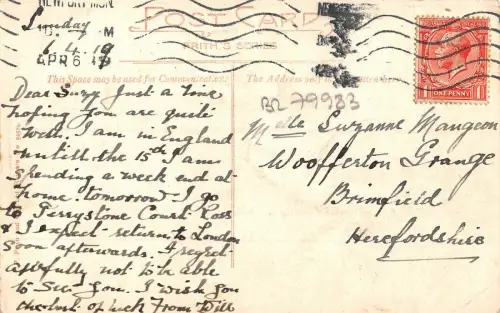 NEWPORT MON
APR 6 19
POST CARD
Sunday
6.4.19
This Space may be used for Communication
The Address only to be written here
BR 79983
Dear Suzy Just a line
hoping you are quite
well. I am in England
untill the 15th I am
Spending a week end at
home. tomorrow I go
to Perrystone Court Ross
& I expect return to London
Soon afterwards. I regret
awfully not to be able
to See you. I wish you
the best of luck From Will
Melle Suzanne Maugeon
Woofferton Grange
Brimfield
Herefordshire
ONE PENNY